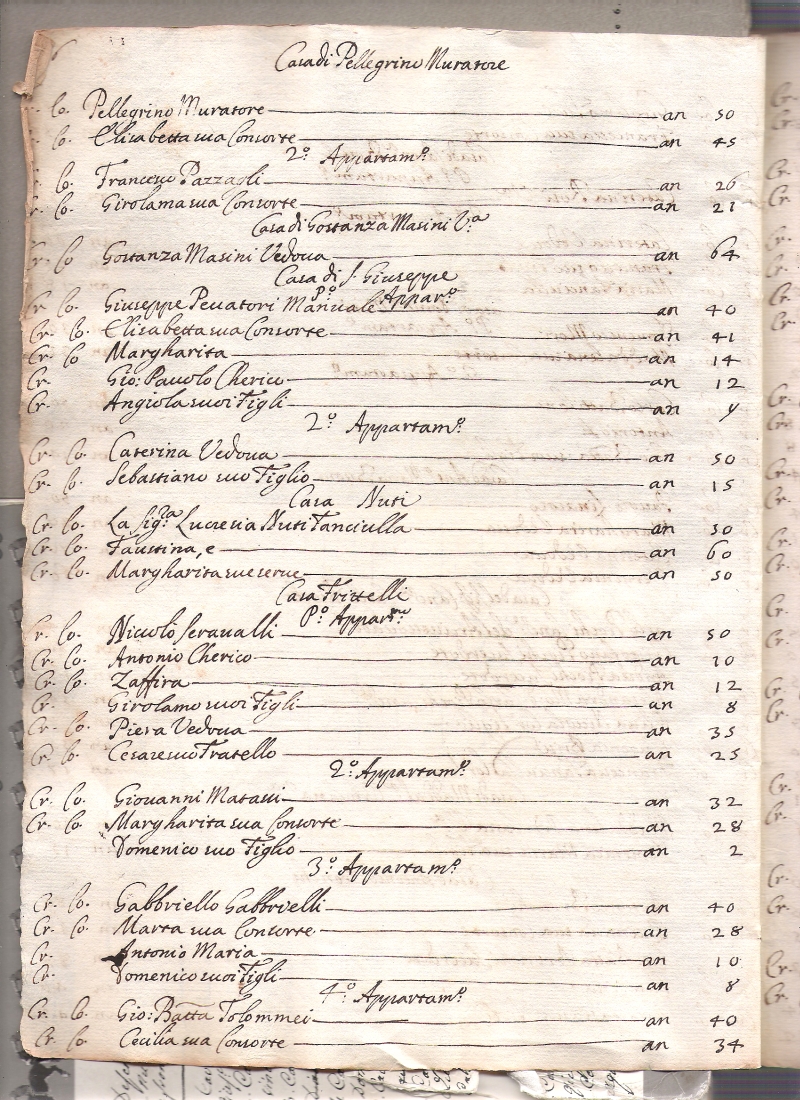 Casa di Pellegrino Muratore
Co. Pellegrino Muratore an 50
Co. Elisabetta sua Consorte an 45
2.º Appartam.º
Co. Francesco Pazzagli an 26
Cr. Co. Girolama sua Consorte an 21
Casa di Gostanza Masini V.ª
Cr. Co Gostanza Masini Vedova an 64
Casa di S. Giuseppe
P.º Appar.º
Cr. Co. Giuseppe Manuale an 40
Cr. Co. Elisabetta sua Consorte an 41
Cr. Co Margharita an 14
Cr. Gio: Pavolo Cherico an 12
Cr. Angiola suoi Figli an 9
2.º Appartam.º
Cr. Co. Caterina Vedova an 50
Cr. Co. Sebastiano suo Figlio an 15
Casa Nuti
Cr. Co. La Sig.ra Lucresia Nuti Fanciulla an 50
Cr. Co. Faustina, e an 60
Cr. Co. Margharita sue serve an 50
Casa Frittelli
P.º Appar.
r. Co. Niccolò Seravalli an 50
Cr. Co. Antonio Cherico an 10
Cr. Co. Zaffira an 12
Cr. Girolamo suoi Figli an 8
Cr. Co. Piera Vedova an 35
Cr. Co. Cesare suo Fratello an 25
2.º Appartam.º
Cr. Co. Giovanni Matassi an 32
Cr. Co. Margharita sua Consorte an 28
Domenico suo Figlio an 2
3.º Appartam.º
Cr. Co. Gabbriello Gabbrielli an 40
Cr. Co. Marta sua Consorte an 28
Cr. Antonio Maria an 10
Cr. Domenico suoi Figli an 8
4.º Appartam.º
Cr. Co. Gio: Batta Tolommei an 40
Cr. Co Cecilia sua Consorte an 34